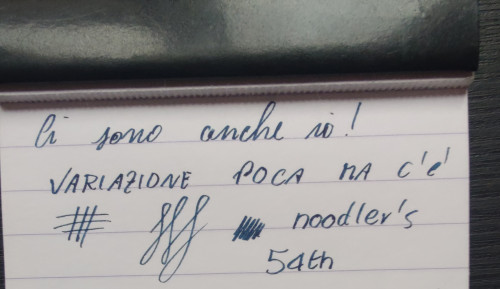 Ci sono anche io!
VARIAZIONE POCA MA C'è
noodler's
54th